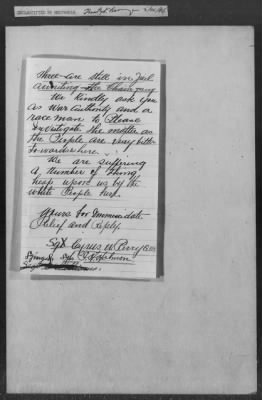 Three are still in Jail
awaiting the Chain gang
We Kindly ask you
as War authority and a
race man to Please
Investigate the matter as
the People are very bitter
towards us here.
We are suffering
a number of things
heap upon us by the
white People here.
Yours for Immediate
Relief and reply.
Sgt Cyrus W. Perry